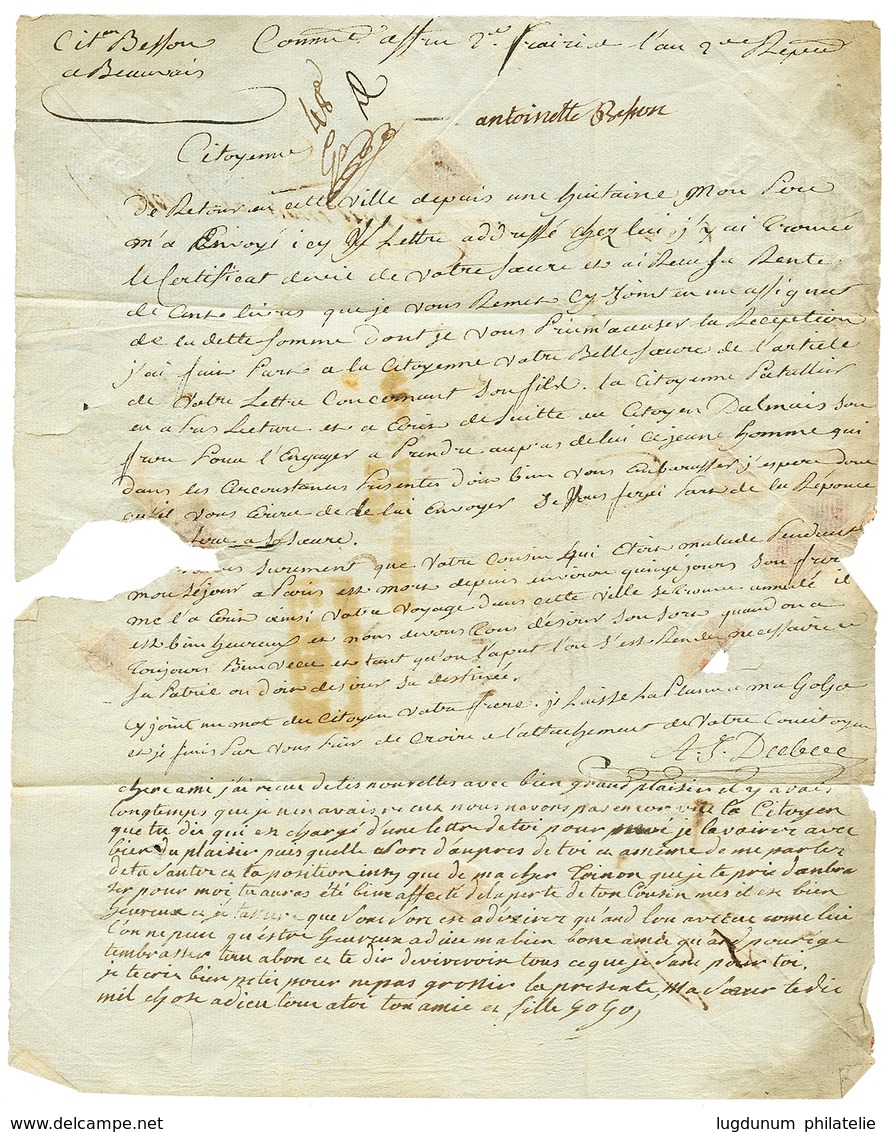 Cit.en Besson Commune d'affra 2.e frairial l'an 2.me Repu
a Beauvais
antoinette Besson
Citoyenne
De Retour en cette Ville depuis une huitaine Mon Pere
m'a Envoyé icy Vtre Lettre addressé chez lui, j'y ai trouvée
le Certificat de vie de Votre Soeure et ai Recu Sa Rente
de Cent livres que je vous Remet Cy Joint en un assignat
de la dette Somme dont je vous Prie m'acuser la Reception
j'ai fait Part a la Citoyenne Votre Belle Soeure de l'article
de Votre Lettre Concernant Son fils. la Citoyenne Patallier
en a Pris Lecture et a Ecrit de Suitte au Citoyen Dalmais Son
frere Pour l'Engager a Prendre aupres de lui Ce jeune homme qui
dans les Circonstances Presentes doit bien vous Embarasser, j'espere donc
qu'il vous Ecrira de le lui Envoyer Je Vous ferai Part de la Réponce
a Sa Soeure.
Surement que Votre Cousin qui Etoit malade Pendant
mon Séjour a Paris est mort depuis environ quinze jours Son frere
me l'a Ecrit ainsi Votre Voyage dans cette Ville se trouve annulé il
est bien heureux et nous devons tous desirer Son Sort quand on a
Toujours Bien Vecu et tant qu'on l'a put l'on S'est Rendu necessaire a
Sa Patrie on doit desirer Sa destinée.
Cy joint un mot du Citoyen Votre frere. je Laisse La Plume a ma GoGo
et je finis Par vous Prier de Croire a l'attachement de Votre Concitoyen
chere ami j'ai recu de tes nouvelles avec bien grand plaisir il y avais
longtemps que je nen avais recux nous navons pas encor vue la Citoyen
que tu dis qui est chargé d'une lettre de toi pour moi je la voirez avec
bien du plaisir puis quelle a Sort d'aupres de toi et a même de me parler
de ta Santer et ta position insy que de ma cher Toinon que je te prie d'anbra
ser pour moi tu auras été bien affecté de la perte de ton Cousin mes il est bien
heureux et je tassure que Sont Sort est a dézirez quand lon a vecue come lui
l'on ne peut qu'estre heureux adieu ma bien bone amie quand pourége
tembrasser tout a bon et te dir de vivevoir tous ce que je Sant pour toi.
je técris bien petit pour ne pas grossir la presente, ma Soeur te dis
mil chose adieu tout a toi ton amie et fille GoGo,
delcampe.net
lugdunum philatelie